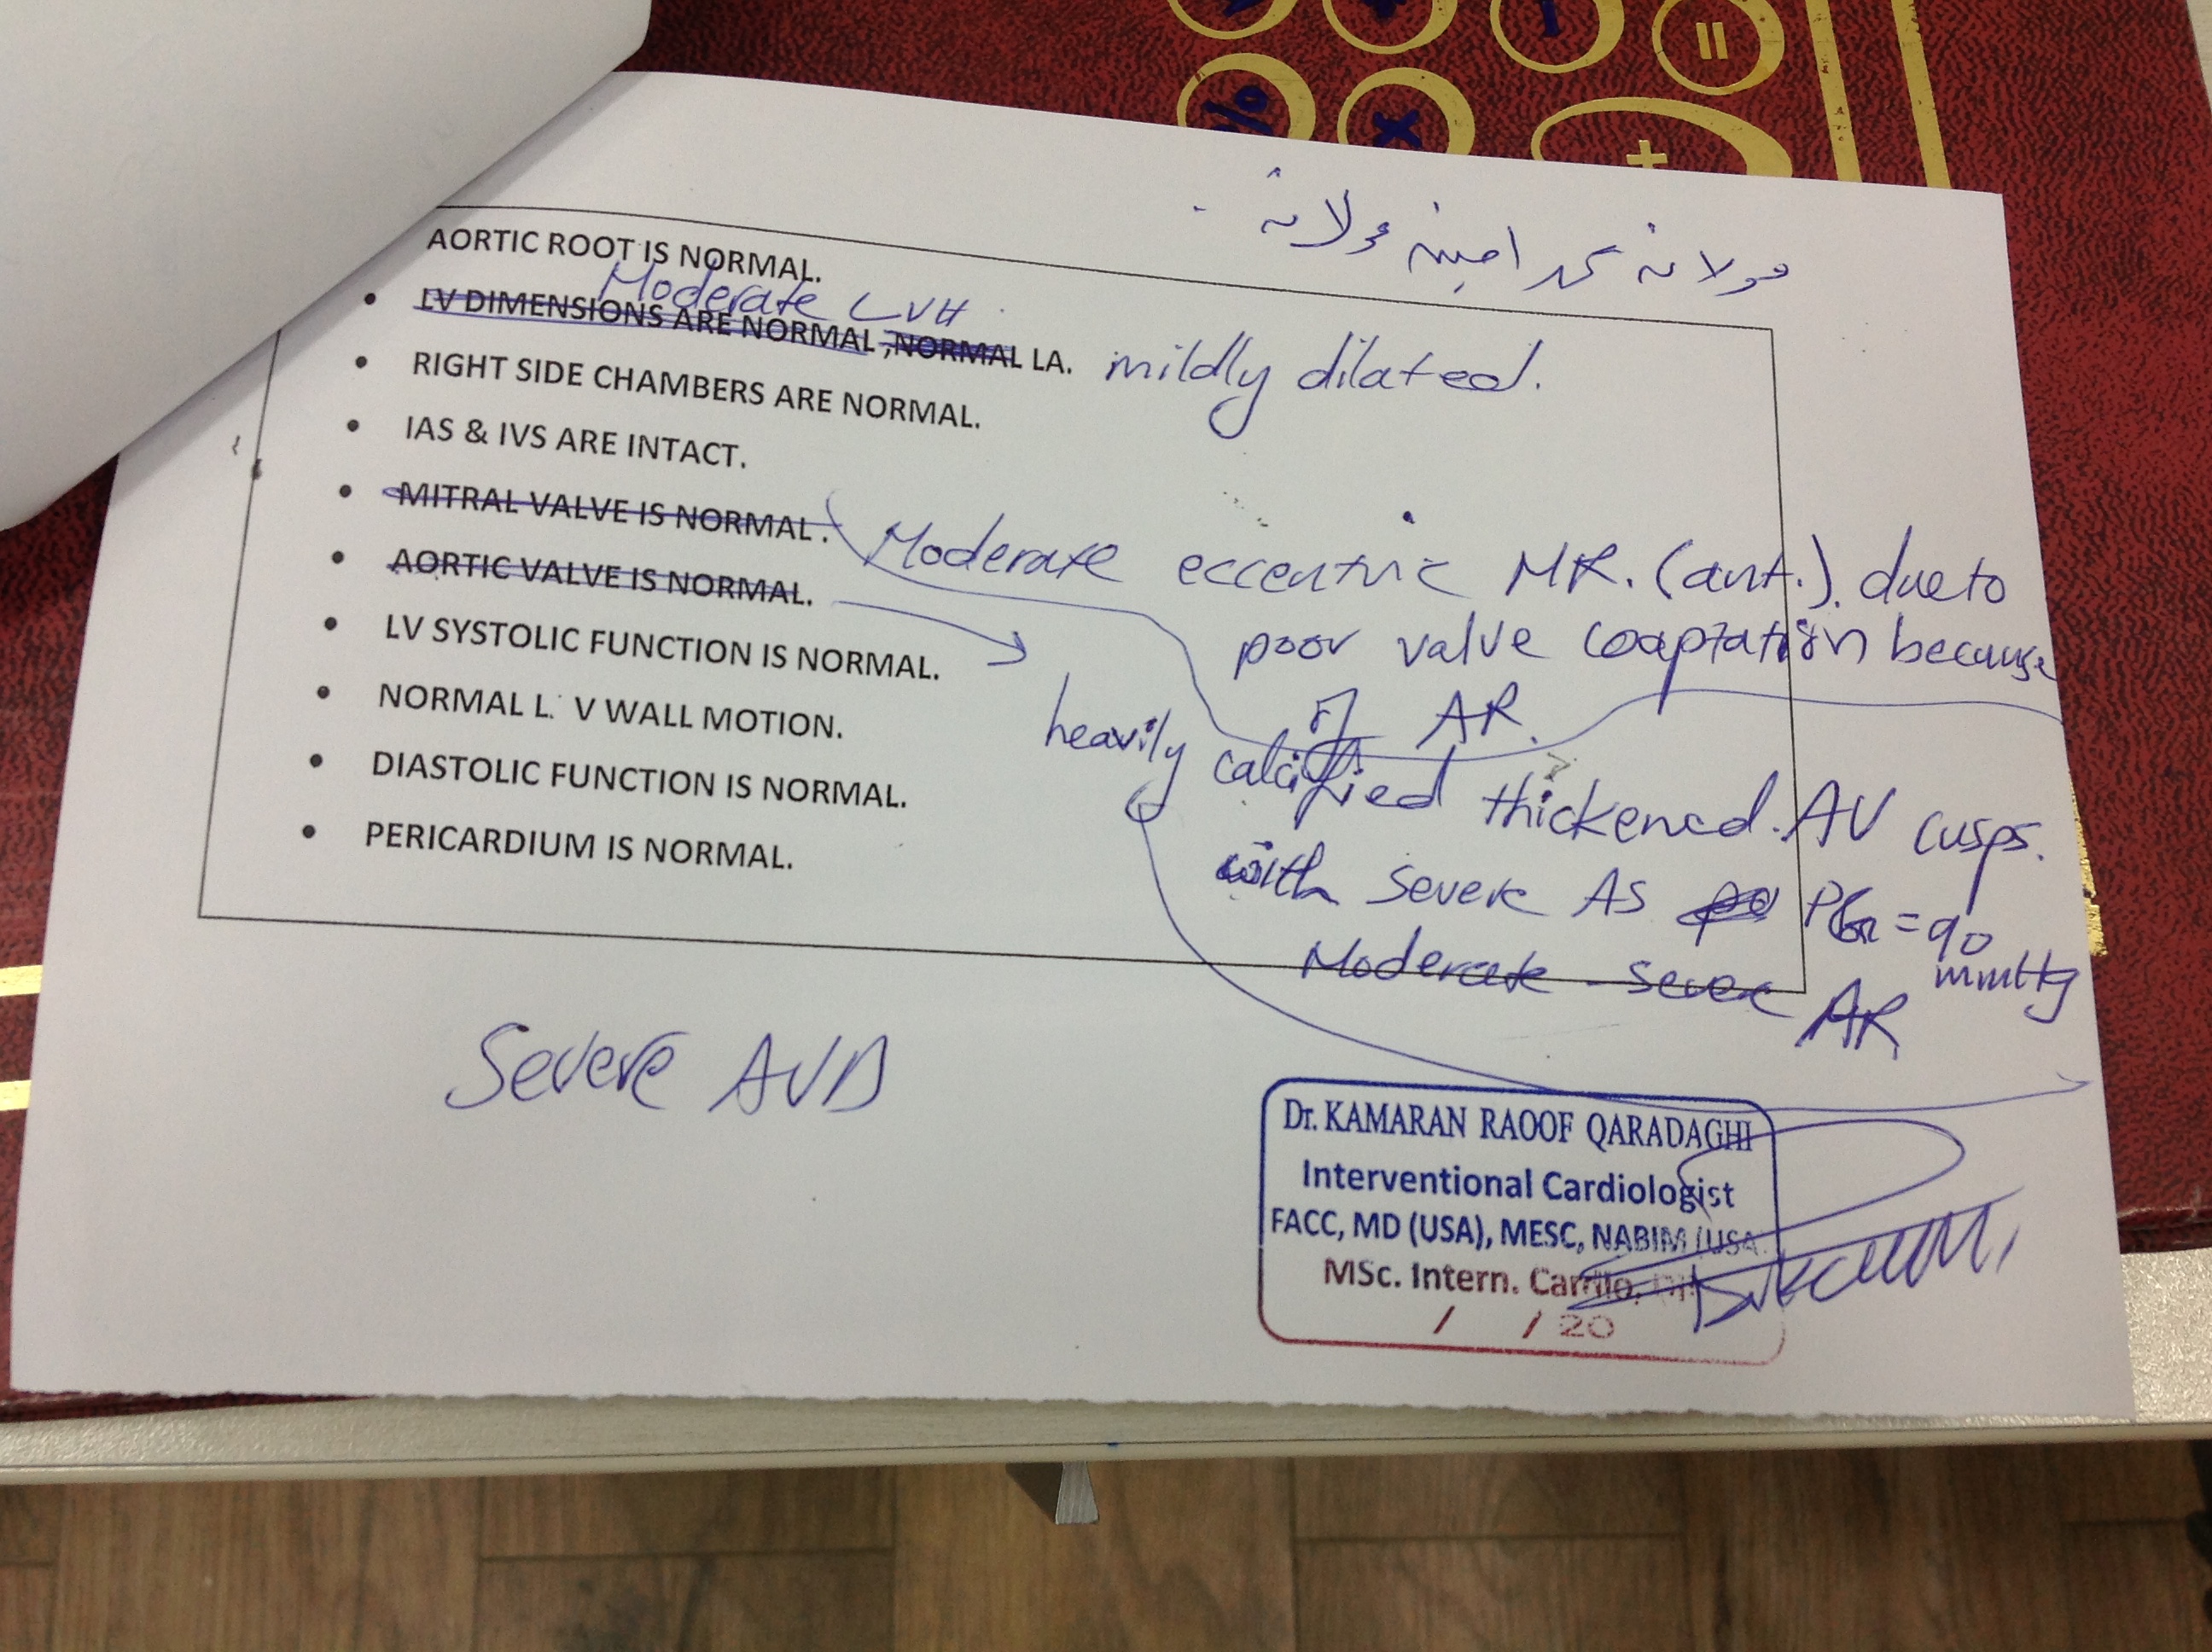 مولانە محمد امینە مولانە
AORTIC ROOT IS NORMAL.
Moderate LVH
• LV DIMENSIONS ARE NORMAL ,NORMAL LA. mildly dilated.
• RIGHT SIDE CHAMBERS ARE NORMAL.
• IAS & IVS ARE INTACT.
• MITRAL VALVE IS NORMAL .
Moderate eccentric MR. (ant.). due to
poor valve coaptation because
of AR.
• AORTIC VALVE IS NORMAL.
heavily calcified thickened. AV cusps.
with severe AS PGr = 90
mmHg
Moderate - severe AR
• LV SYSTOLIC FUNCTION IS NORMAL.
• NORMAL L. V WALL MOTION.
• DIASTOLIC FUNCTION IS NORMAL.
• PERICARDIUM IS NORMAL.
Severe AVD
Dr. KAMARAN RAOOF QARADAGHI
Interventional Cardiologist
FACC, MD (USA), MESC, NABIM (USA
MSc. Intern. Cardio,
/ / 20
% × + =